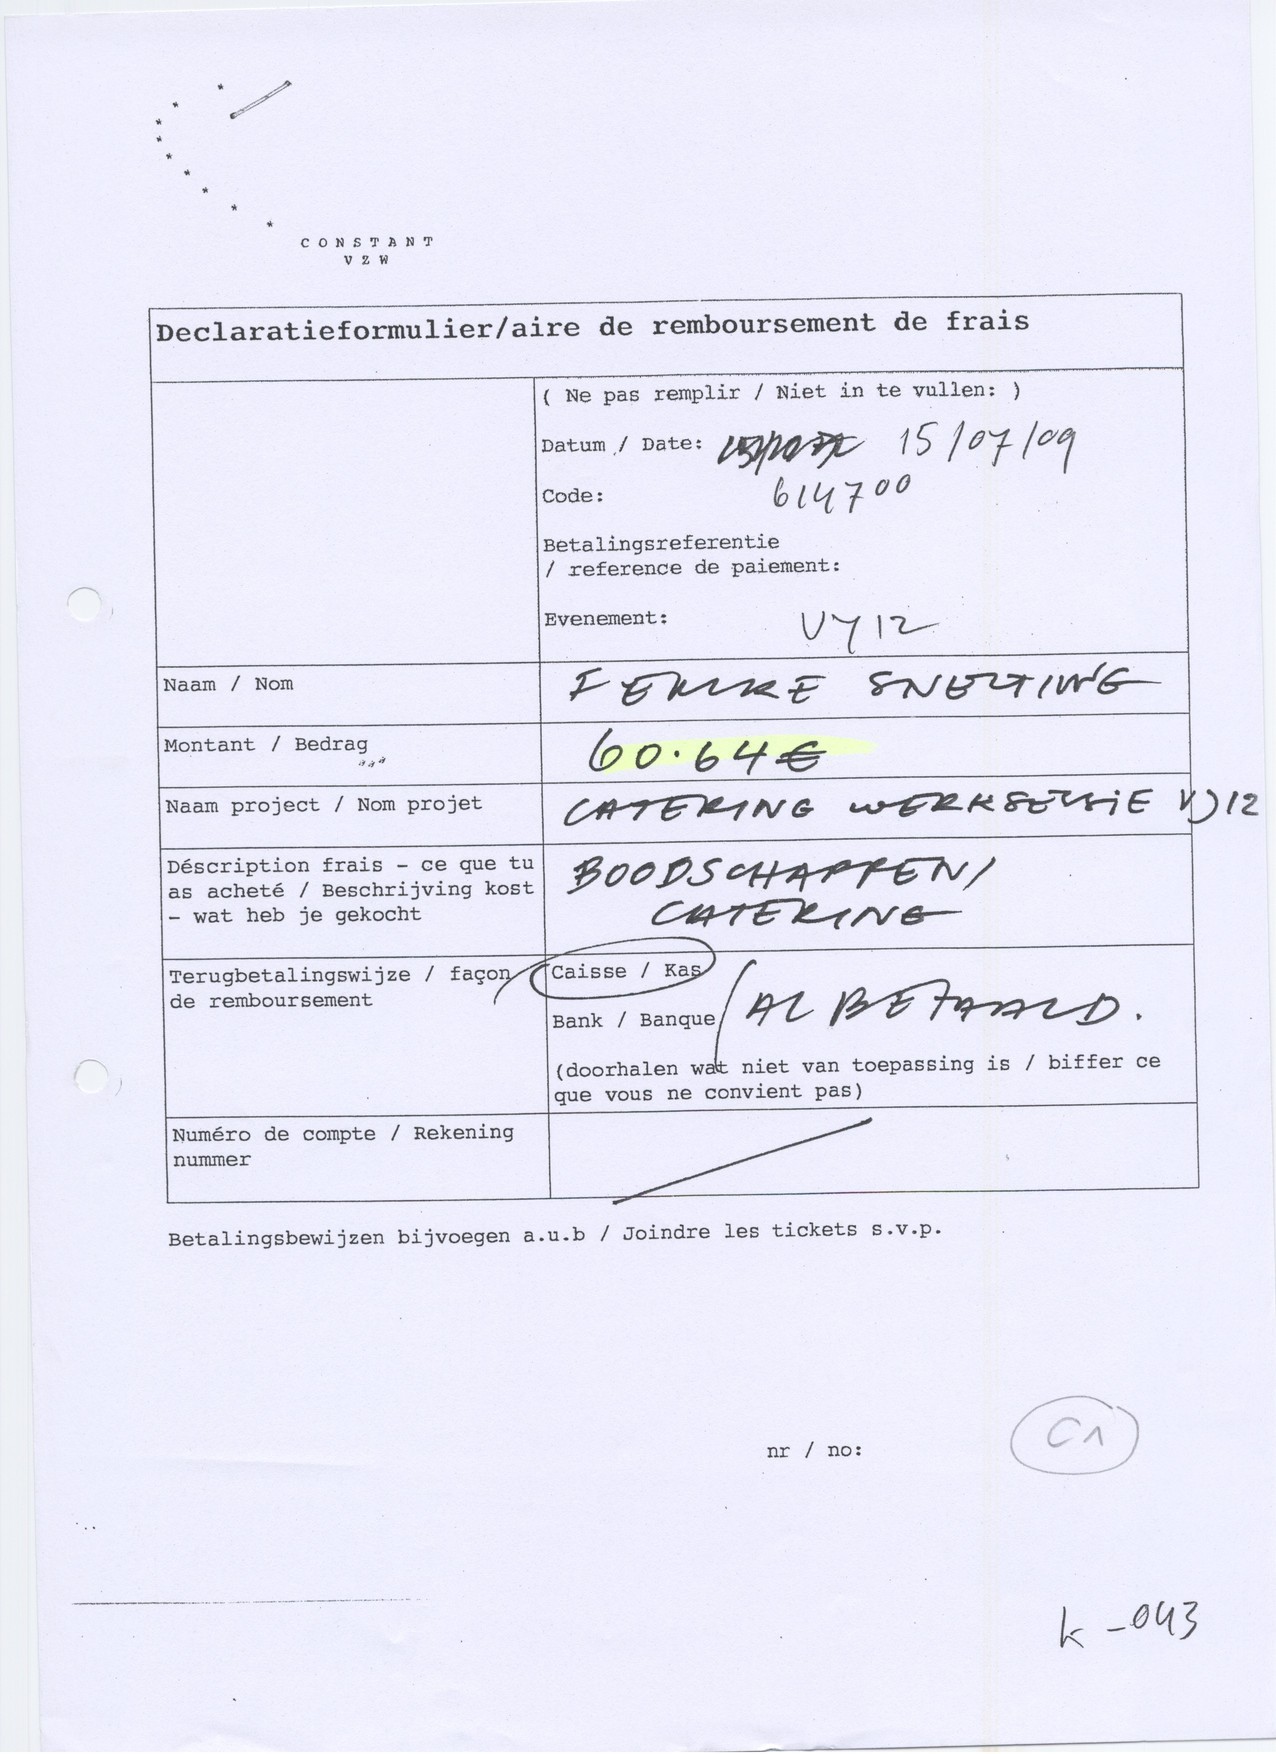 CONSTANT
VZW
Declaratieformulier/aire de remboursement de frais
( Ne pas remplir / Niet in te vullen: )
Datum / Date: 15/07/09
Code: 614700
Betalingsreferentie
/ reference de paiement:
Evenement: VJ12
Naam / Nom FEMKE SNELTING
Montant / Bedrag 60.64€
Naam project / Nom projet CATERING WERKSESSIE VJ12
Déscription frais - ce que tu
as acheté / Beschrijving kost
- wat heb je gekocht
BOODSCHAPPEN/
CATERING
Terugbetalingswijze / façon
de remboursement
Caisse / Kas
Bank / Banque / AL BETAALD.
(doorhalen wat niet van toepassing is / biffer ce
que vous ne convient pas)
Numéro de compte / Rekening
nummer
Betalingsbewijzen bijvoegen a.u.b / Joindre les tickets s.v.p.
nr / no: C1
K-043